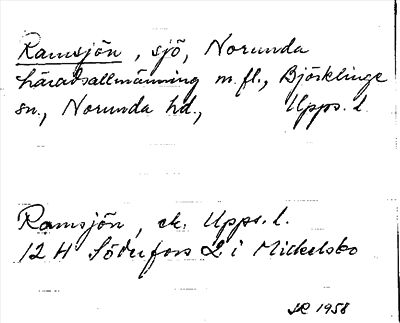 Ramsjön, sjö, Norunda
häradsallmänning m.fl., Björklinge
sn., Norunda hd., Upps. l.
Ramsjön, ek. Upps. l.
12 H Söderfors 2 i Mickelsbo
1958